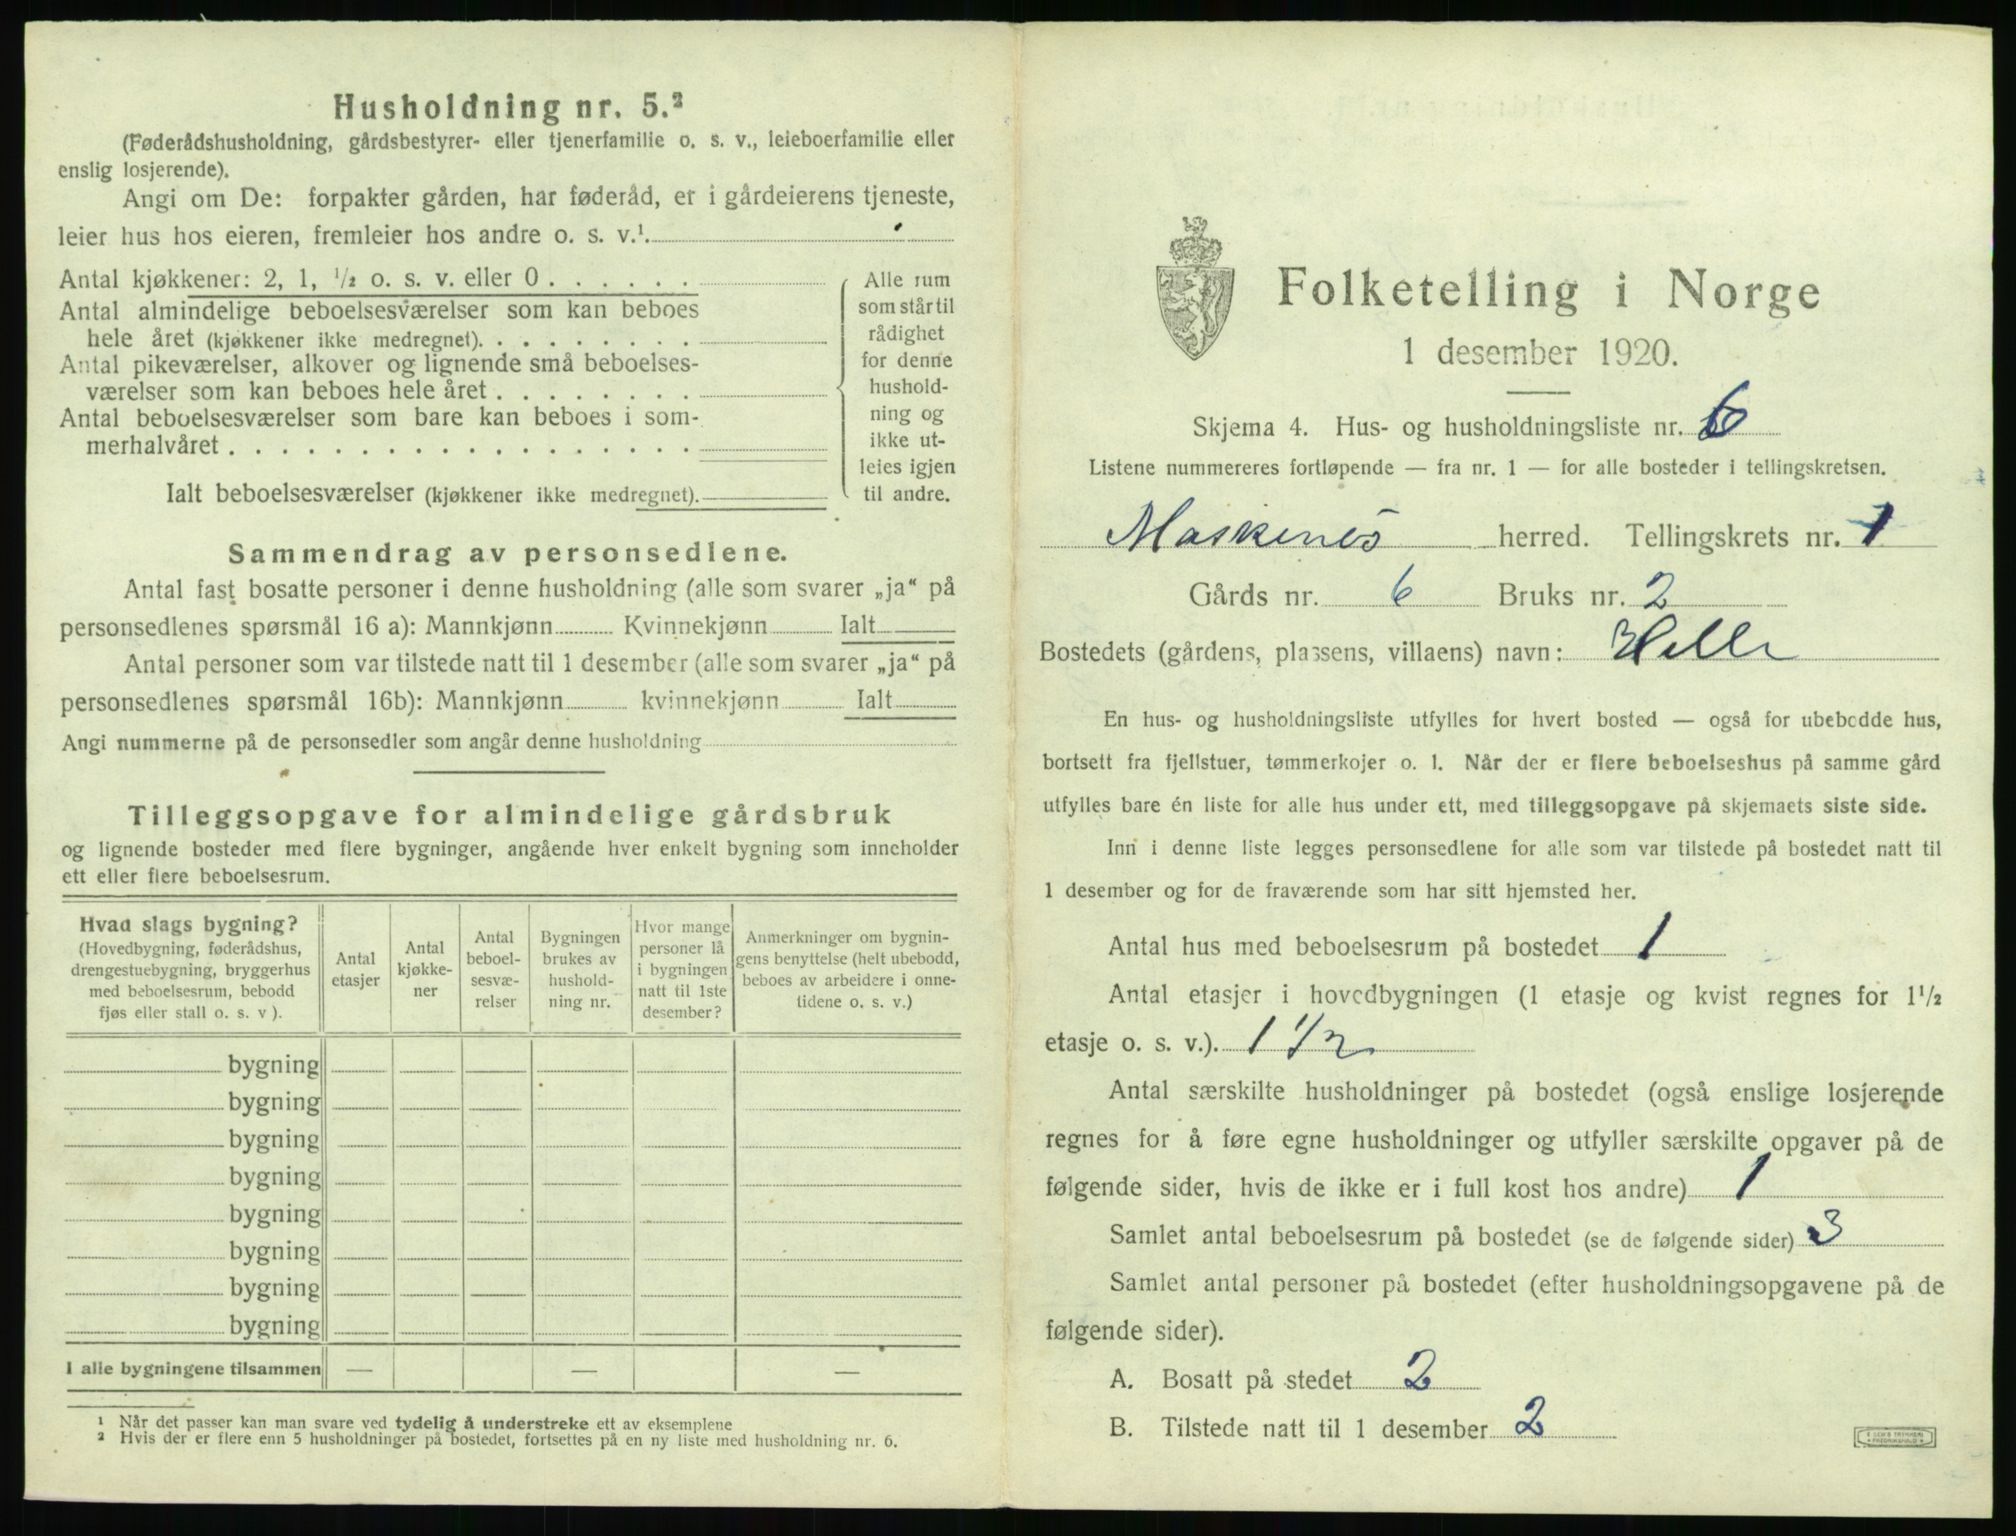 Husholdning nr. 5.²
(Føderådshusholdning, gårdsbestyrer- eller tjenerfamilie o. s. v., leieboerfamilie eller
enslig losjerende).
Angi om De: forpakter gården, har føderåd, er i gårdeierens tjeneste,
leier hus hos eieren, fremleier hos andre o. s. v.¹.
Antal kjøkkener: 2, 1, ½ o. s. v. eller 0 . . . . . .
Antal almindelige beboelsesværelser som kan beboes
hele året (kjøkkener ikke medregnet). . . . . . . . .
Antal pikeværelser, alkover og lignende små beboelses-
værelser som kan beboes hele året . . . . . . . .
Antal beboelsesværelser som bare kan beboes i som-
merhalvåret . . . . . . . . . . . . . . . . . .
Ialt beboelsesværelser (kjøkkener ikke medregnet).
Alle rum
som står til
rådighet
for denne
hushold-
ning og
ikke ut-
leies igjen
til andre.
Sammendrag av personsedlene.
Antal fast bosatte personer i denne husholdning (alle som svarer „ja“ på
personsedlenes spørsmål 16 a): Mannkjønn Kvinnekjønn Ialt
Antal personer som var tilstede natt til 1 desember (alle som svarer „ja“ på
personsedlenes spørsmål 16b): Mannkjønn kvinnekjønn Ialt
Angi nummerne på de personsedler som angår denne husholdning
Tilleggsopgave for almindelige gårdsbruk
og lignende bosteder med flere bygninger, angående hver enkelt bygning som inneholder
ett eller flere beboelsesrum.
Hvad slags bygning?
(Hovedbygning, føderådshus,
drengestuebygning, bryggerhus
med beboelsesrum, bebodd
fjøs eller stall o. s. v ).
Antal
etasjer
Antal
kjøkke-
ner
Antal
beboel-
sesvæ-
relser
Bygningen
brukes av
hushold-
ning nr.
Hvor mange
personer lå
i bygningen
natt til 1ste
desember?
Anmerkninger om bygnin-
gens benyttelse (helt ubebodd,
beboes av arbeidere i onne-
tidene o. s. v.)
bygning
bygning
bygning
bygning
bygning
bygning
bygning
bygning
I alle bygningene tilsammen — — —
¹ Når det passer kan man svare ved tydelig å understreke ett av eksemplene
² Hvis der er flere enn 5 husholdninger på bostedet, fortsettes på en ny liste med husholdning nr. 6.
Folketelling i Norge
1 desember 1920.
Skjema 4. Hus- og husholdningsliste nr. 6
Listene nummereres fortløpende — fra nr. 1 — for alle bosteder i tellingskretsen.
Moskenes herred. Tellingskrets nr. 1
Gårds nr. 6 Bruks nr. 2
Bostedets (gårdens, plassens, villaens) navn: Helle
En hus- og husholdningsliste utfylles for hvert bosted — også for ubebodde hus,
bortsett fra fjellstuer, tømmerkojer o. l. Når der er flere beboelseshus på samme gård
utfylles bare én liste for alle hus under ett, med tilleggsopgave på skjemaets siste side.
Inn i denne liste legges personsedlene for alle som var tilstede på bostedet natt til
1 desember og for de fraværende som har sitt hjemsted her.
Antal hus med beboelsesrum på bostedet 1
Antal etasjer i hovedbygningen (1 etasje og kvist regnes for 1½
etasje o. s. v.). 1 1/2
Antal særskilte husholdninger på bostedet (også enslige losjerende
regnes for å føre egne husholdninger og utfyller særskilte opgaver på de
følgende sider, hvis de ikke er i full kost hos andre) 1
Samlet antal beboelsesrum på bostedet (se de følgende sider) 3
Samlet antal personer på bostedet (efter husholdningsopgavene på de
følgende sider).
A. Bosatt på stedet 2
B. Tilstede natt til 1 desember 2